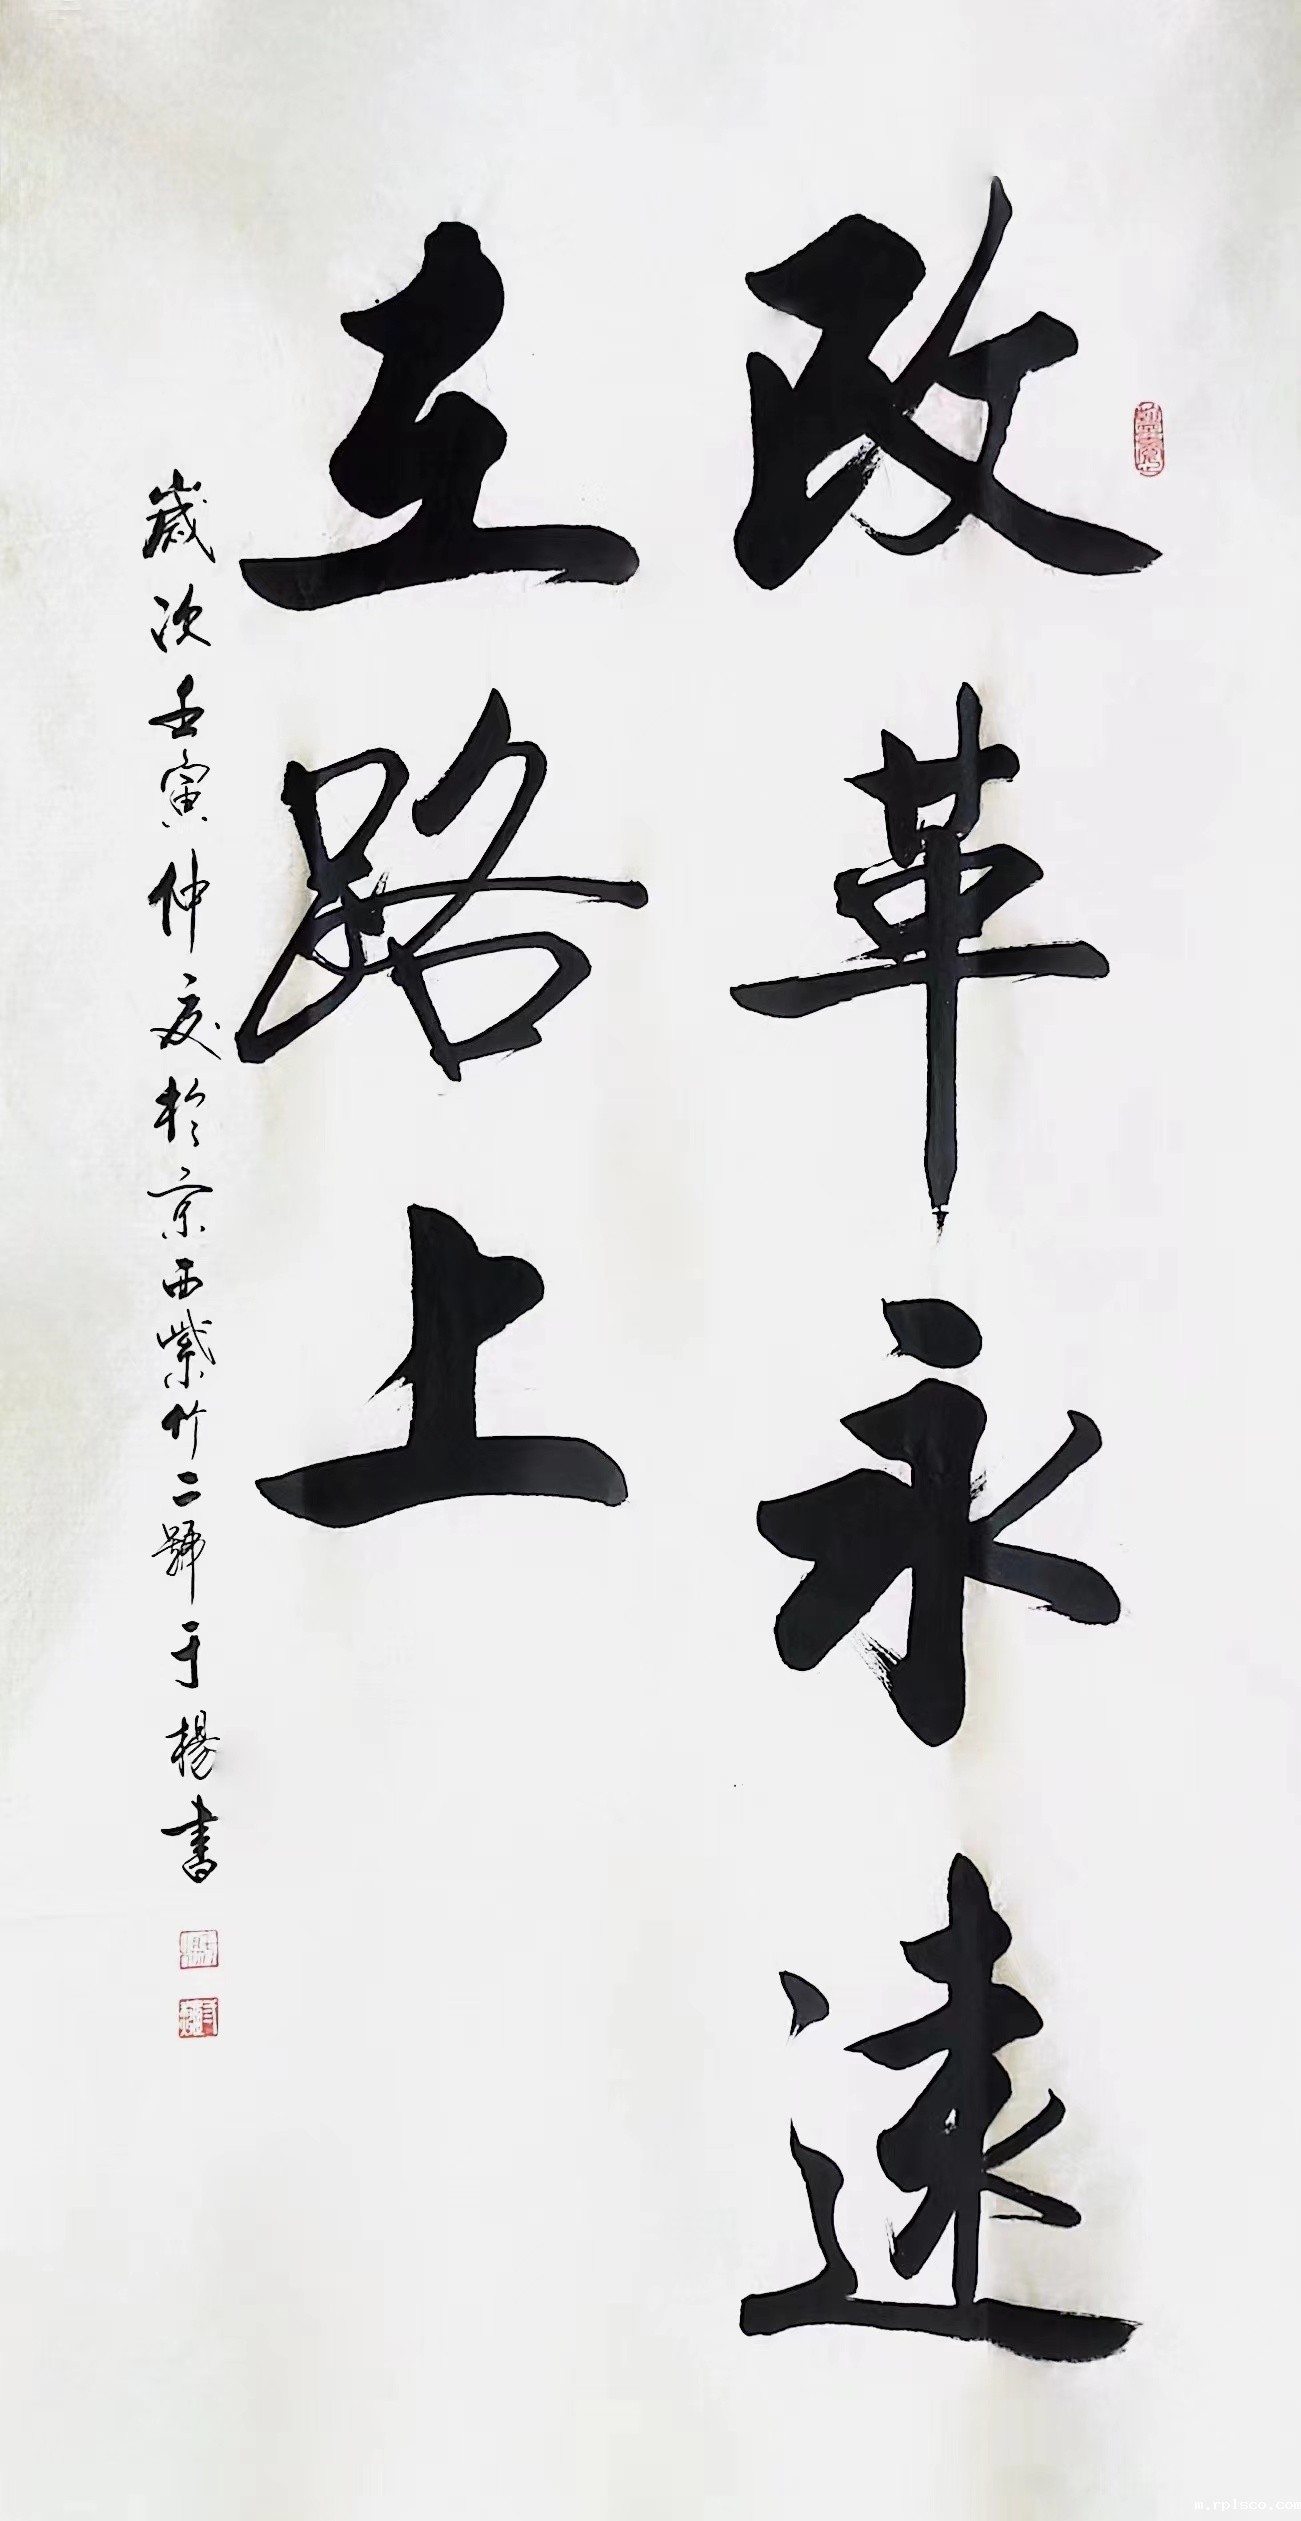 改革永遠
在路上
歲次壬寅仲夏於京西紫竹二號于楊書
m.rplsco.com